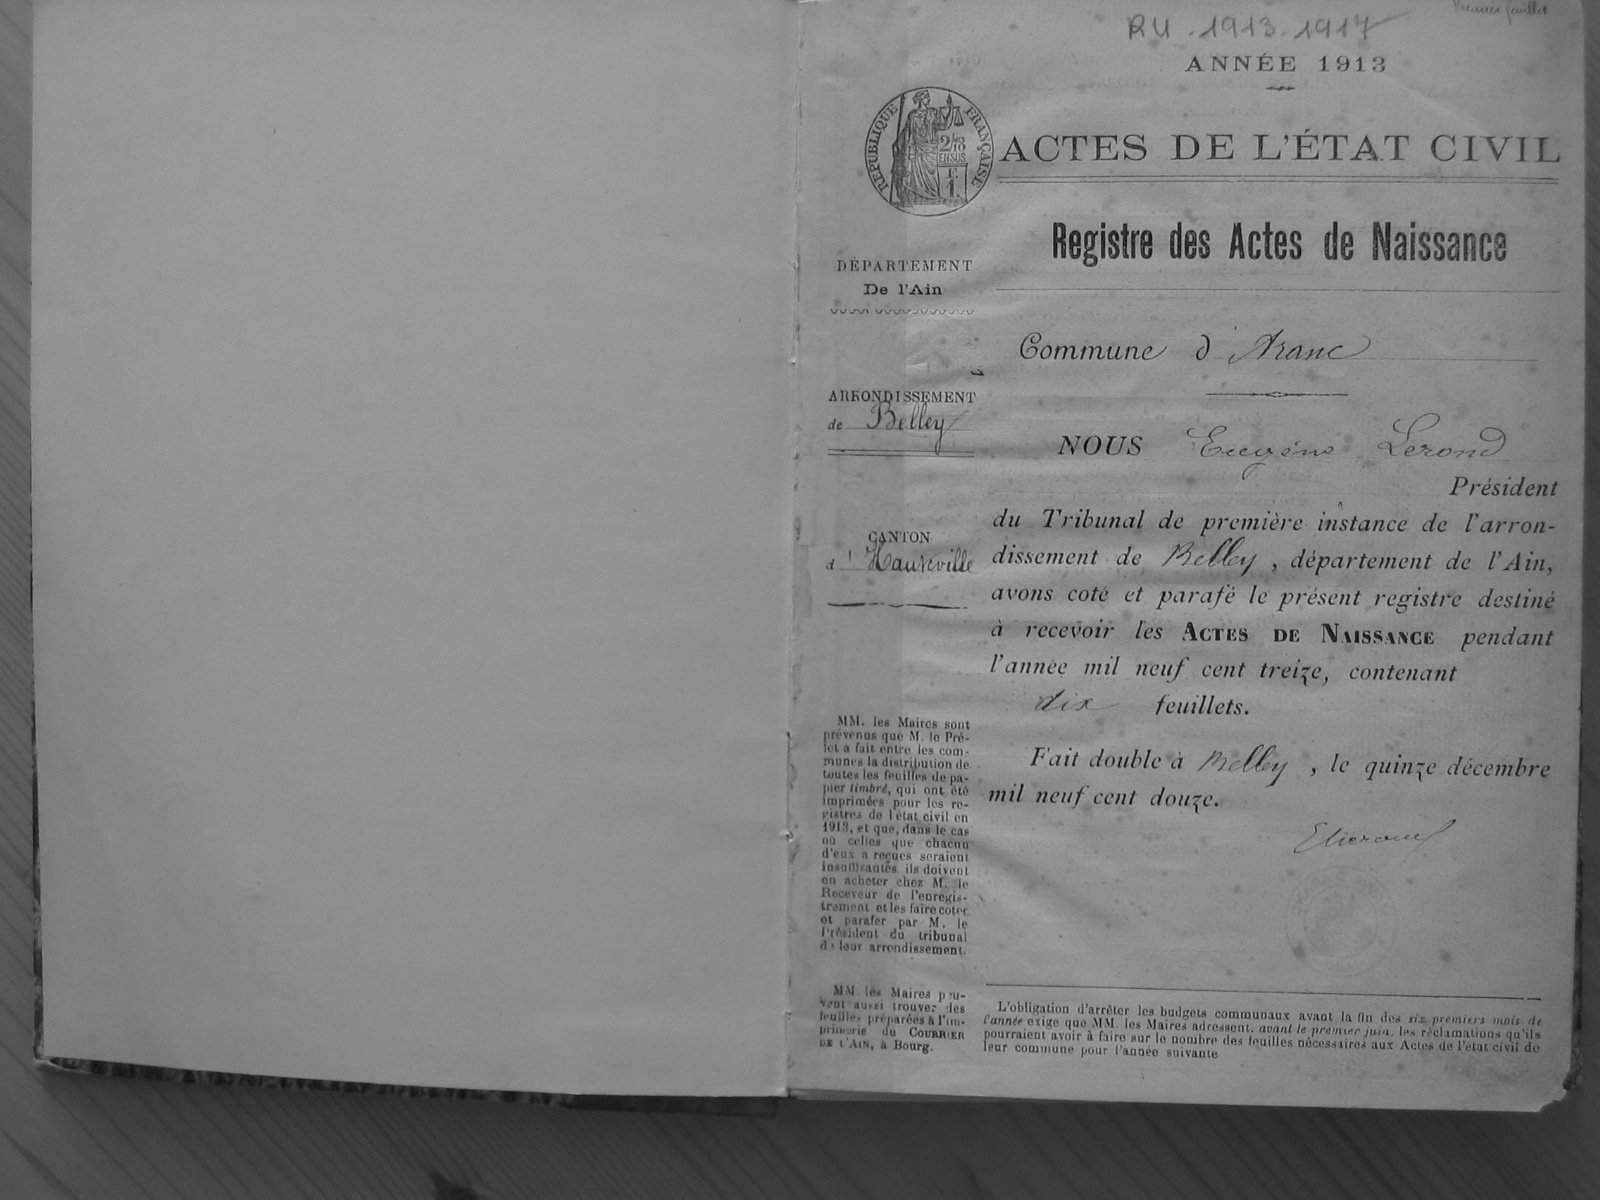 Premier feuillet
RU . 1913 . 1917
ANNÉE 1913
RÉPUBLIQUE FRANÇAISE
2/10
EN SUS
ACTES DE L'ÉTAT CIVIL
Registre des Actes de Naissance
DÉPARTEMENT
De l'Ain
Commune d'Aranc
ARRONDISSEMENT
de Belley
CANTON
d'Hauteville
NOUS Eugène Lerond
Président
du Tribunal de première instance de l'arron-
dissement de Belley, département de l'Ain,
avons coté et parafé le présent registre destiné
à recevoir les ACTES DE NAISSANCE pendant
l'année mil neuf cent treize, contenant
dix feuillets.
Fait double à Belley, le quinze décembre
mil neuf cent douze.
MM. les Maires sont
prévenus que M. le Pré-
fet a fait entre les com-
munes la distribution de
toutes les feuilles de pa-
pier timbré, qui ont été
imprimées pour les re-
gistres de l'état civil en
1913, et que, dans le cas
où celles que chacun
d'eux a reçues seraient
insuffisantes ils doivent
en acheter chez M. le
Receveur de l'enregis-
trement et les faire coter
et parafer par M. le
Président du tribunal
de leur arrondissement.
MM les Maires peu-
vent aussi trouver des
feuilles préparées à l'im-
primerie du COURRIER
DE L'AIN, à Bourg.
L'obligation d'arrêter les budgets communaux avant la fin des six premiers mois de
l'année exige que MM. les Maires adressent, avant le premier juin, les réclamations qu'ils
pourraient avoir à faire sur le nombre des feuilles nécessaires aux Actes de l'état civil de
leur commune pour l'année suivante